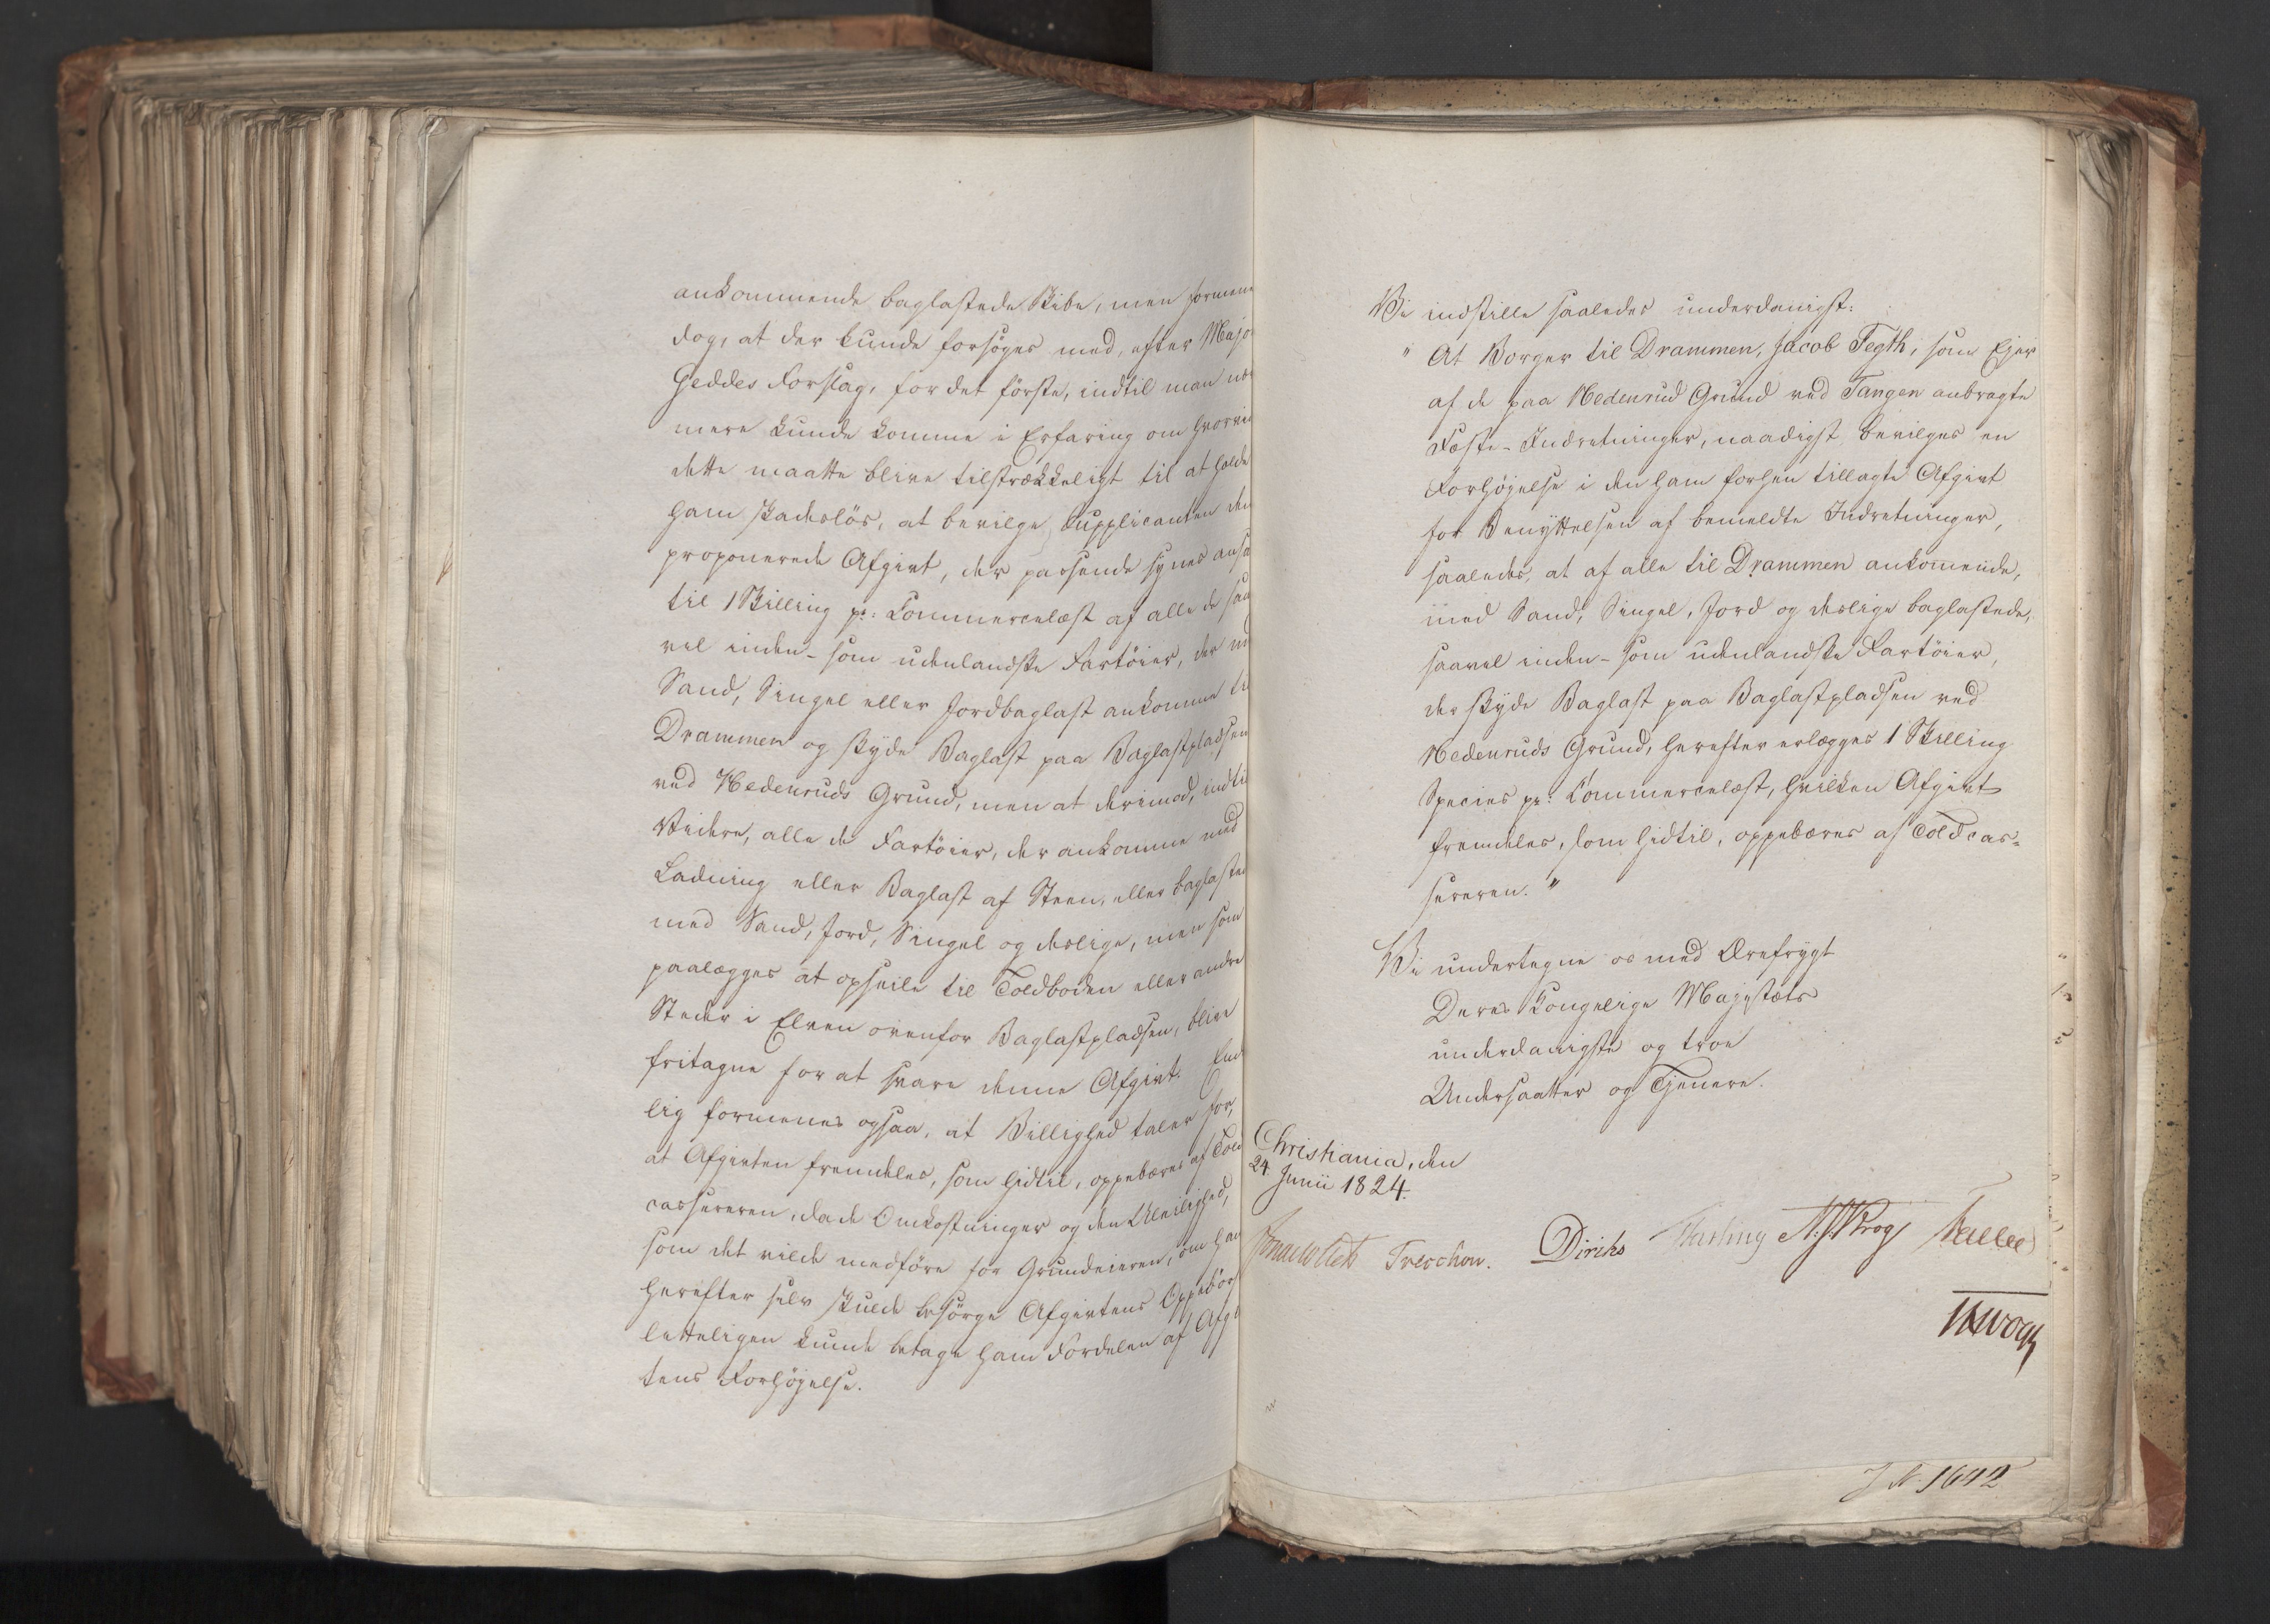 ankommende baglastede Skibe, men formene
dog, at der kunde forsøges med, efter Majo
Geddes Forslag, for det første, indtil man næ
mere kunde komme i Erfaring om hvorvid
dette maatte blive tilstrækkeligt til at holde
ham skadesløs, at bevilge Supplicanten den
proponerede Afgivt, der passende synes ansa
til 1 Skilling pr: Commercelæst af alle de saa
vel inden- som udenlandske Fartøier, der me
Sand, Singel eller Jordbaglast ankomme til
Drammen og skyde Baglast paa Baglastpladsen
ved Nedenruds Grund, men at derimod, indtil
Videre, alle de Fartøier, der ankomme med
Ladning eller Baglast af Steen, eller baglasted
med Sand, Jord, Singel og deslige, men som
paalægges at opseile til Toldboden eller andre
Steder i Elven ovenfor Baglastpladsen, blive
fritagne for at svare denne Afgivt. End
lig formenes ogsaa, at Billighed taler for,
at Afgivten fremdeles, som hidtil, oppebæres af Told
casereren, da de Omkostninger og den Uleilighed,
som det vilde medføre for Grundeieren, om han
herefter selv skulde besørge Afgivtens Oppebør
letteligen kunde betage ham Fordelen af Afgi
tens Forhøjelse.
Vi indstille saaledes underdanigst:
" At Borger til Drammen, Jacob Tegth, som Ejer
af de paa Nedenrud Grund ved Tangen anbragte
Fæste-Indretninger, naadigst bevilges en
Forhøjelse i den ham forhen tillagte Afgivt
for Benyttelsen af bemeldte Indretninger,
saaledes, at af alle til Drammen ankommende,
med Sand, Singel, Jord og deslige baglastede,
saavel inden- som udenlandske Fartøier,
der skyde Baglast paa Baglastpladsen ved
Nedenruds Grund, herefter erlægges 1 Skilling
Species pr: Commercelæst, hvilken Afgivt
fremdeles, som hidtil, oppebæres af Toldcas=
sereren. "
Vi undertegne os med Ærefrygt
Deres Kongelige Majestæts
underdanigste og troe
Undersaatter og Tjenere.
Christiania, den
24. Junii 1824.
Treschow. Diriks N. J. Krog
J N. 1642